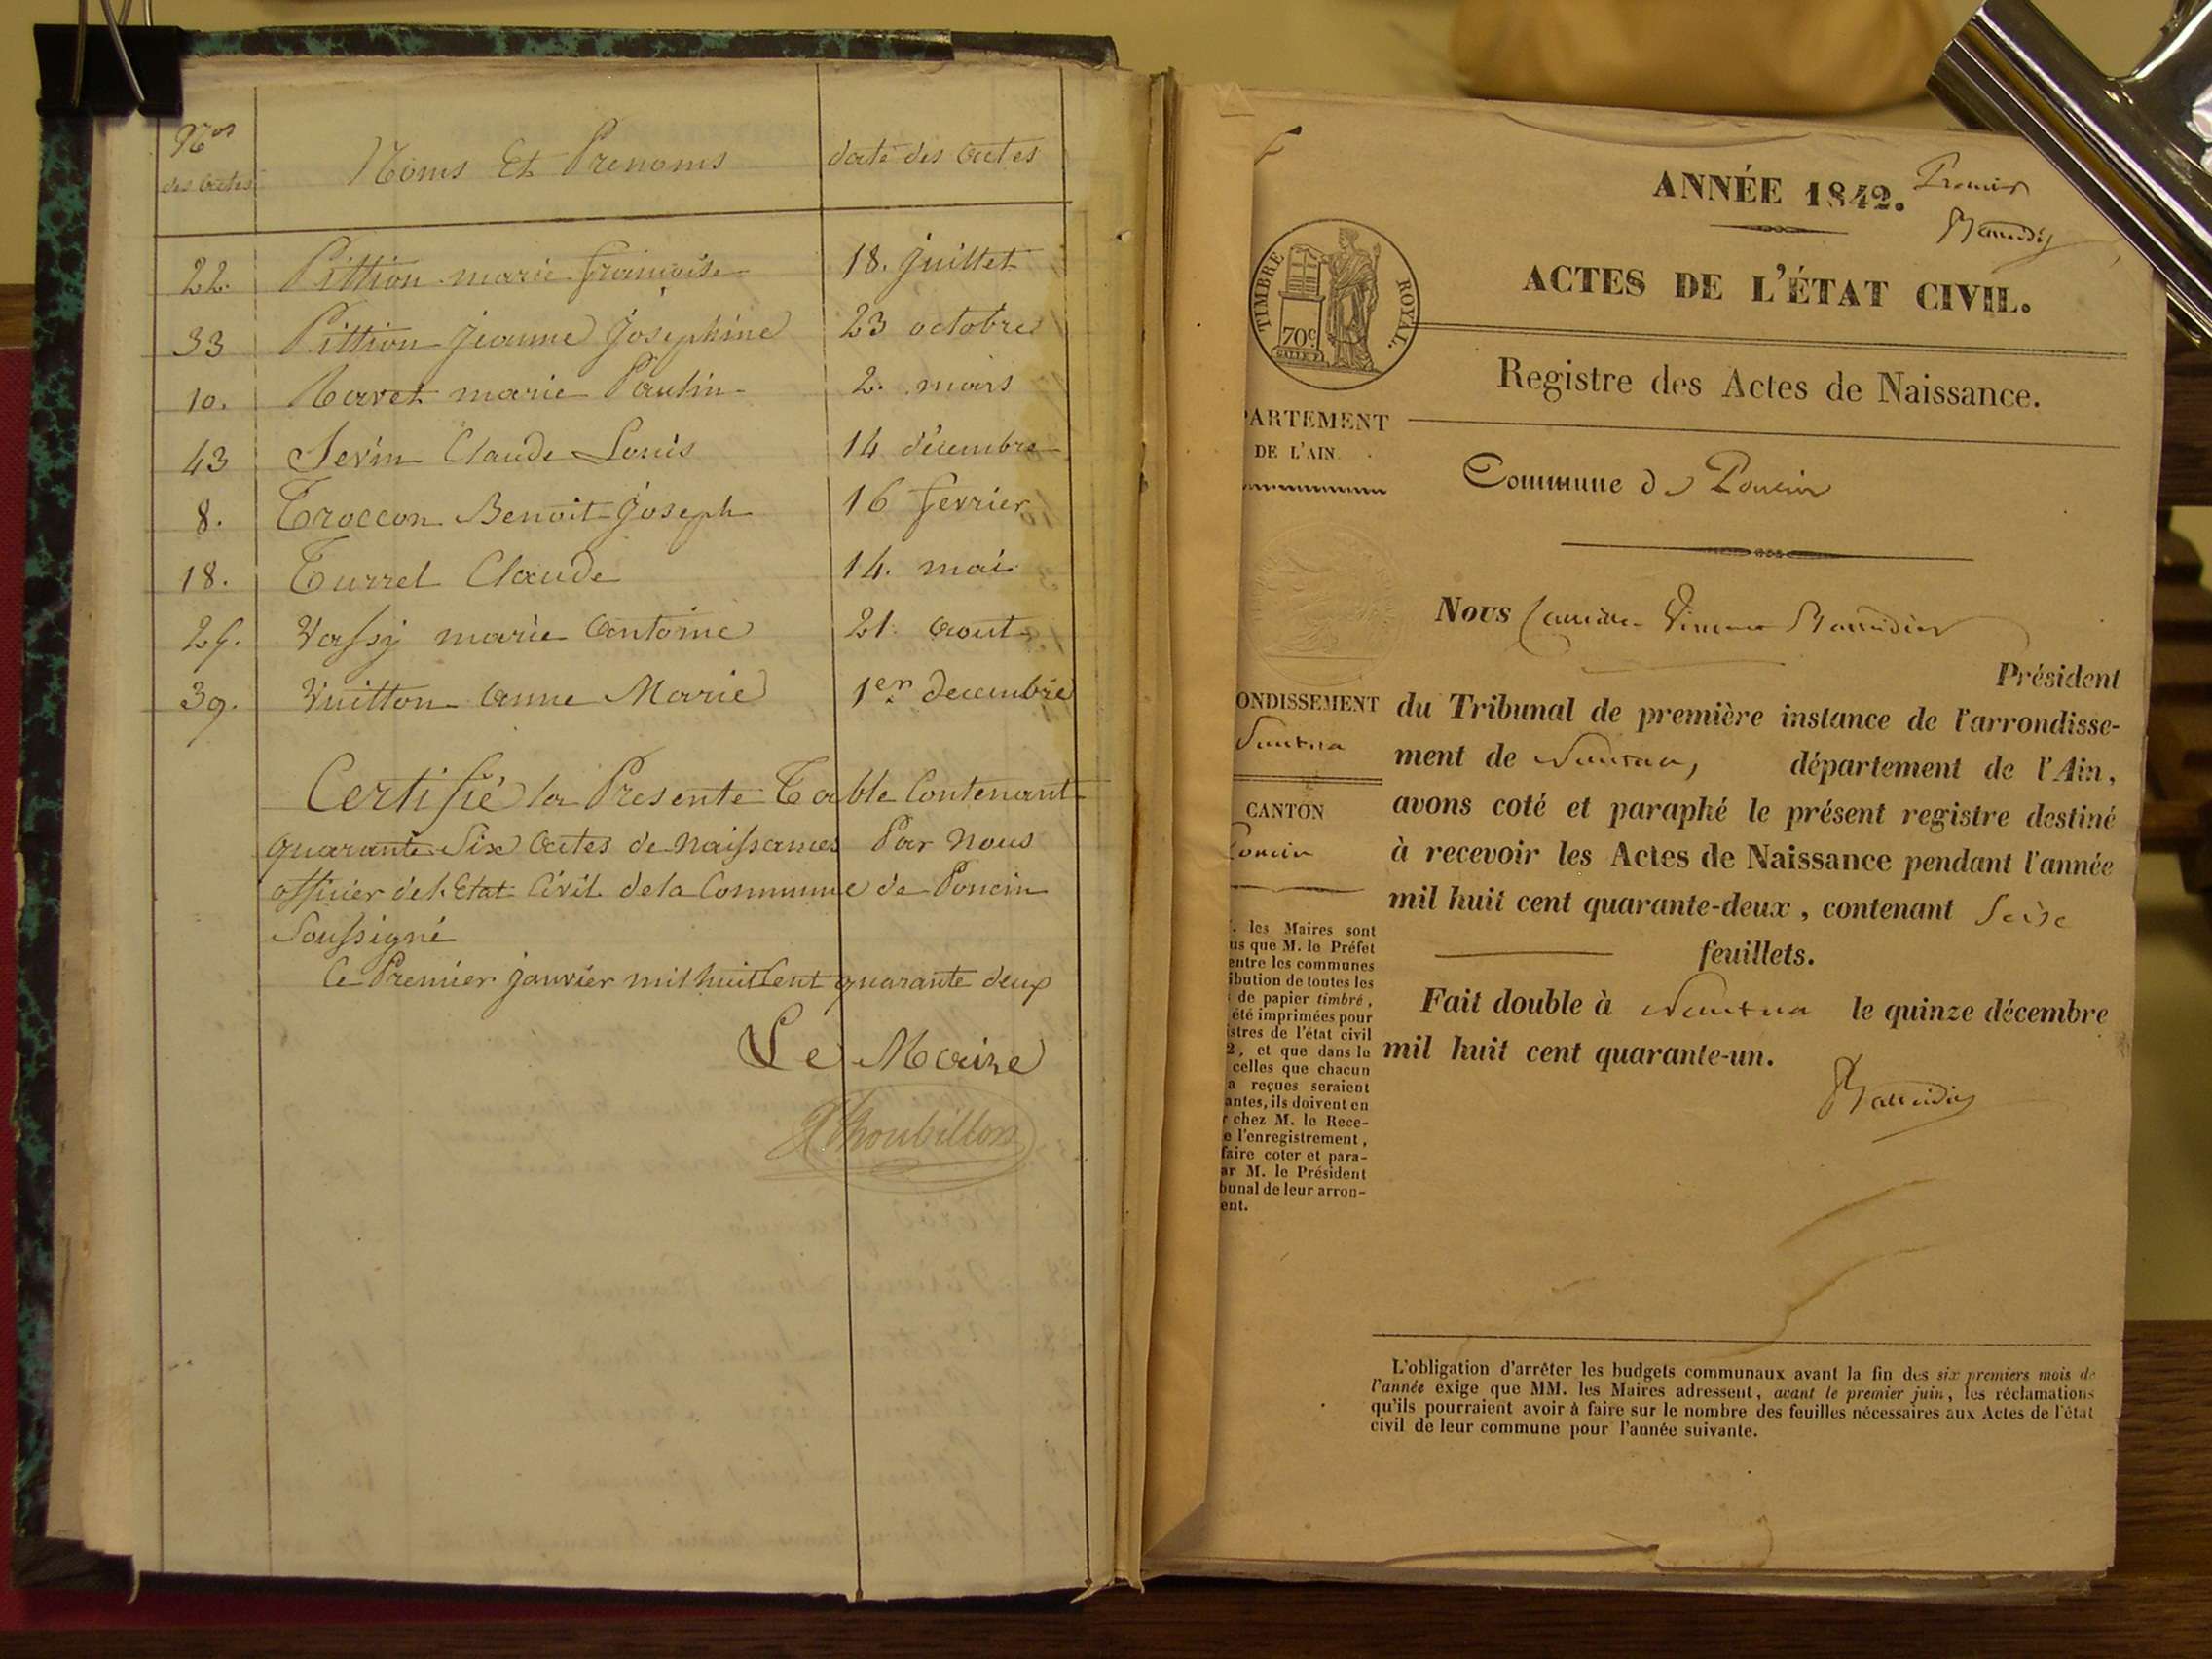 Nos des actes Noms Et Prenoms date des actes
22. Pittion marie françoise 18. juillet
33 Pittion jeanne josephine 23 octobre
10. Ravet marie Paulin 2. mars
43 Sevin Claude Louis 14 décembre
8. Troccon Benoit joseph 16 fevrier
18. Turrel Claude 14. mai
25. Vassy marie antoine 21 aout
39. Vuitton anne Marie 1er decembre
Certifié la Presente Table Contenant
quarante Six actes de naissances Par nous
officier de l'Etat Civil de la Commune de Poncin
Soussigné
le Premier janvier mil huit Cent quarante deux
Le Maire
Thoubillon
ANNÉE 1842. Premier
ACTES DE L'ÉTAT CIVIL.
TIMBRE ROYAL.
70c
Registre des Actes de Naissance.
PARTEMENT
DE L'AIN.
Commune de Poncin
Nous Vincent
Président
ONDISSEMENT
Nantua
du Tribunal de première instance de l'arrondisse-
ment de Nantua, département de l'Ain,
CANTON
Poncin
avons coté et paraphé le présent registre destiné
à recevoir les Actes de Naissance pendant l'année
mil huit cent quarante-deux, contenant Seize
feuillets.
Fait double à Nantua le quinze décembre
mil huit cent quarante-un.
. les Maires sont
us que M. le Préfet
entre les communes
ibution de toutes les
de papier timbré,
été imprimées pour
istres de l'état civil
2, et que dans le
celles que chacun
a reçues seraient
antes, ils doivent en
r chez M. le Rece-
e l'enregistrement,
faire coter et para-
ar M. le Président
bunal de leur arron-
ent.
L'obligation d'arrêter les budgets communaux avant la fin des six premiers mois de
l'année exige que MM. les Maires adressent, avant le premier juin, les réclamations
qu'ils pourraient avoir à faire sur le nombre des feuilles nécessaires aux Actes de l'état
civil de leur commune pour l'année suivante.